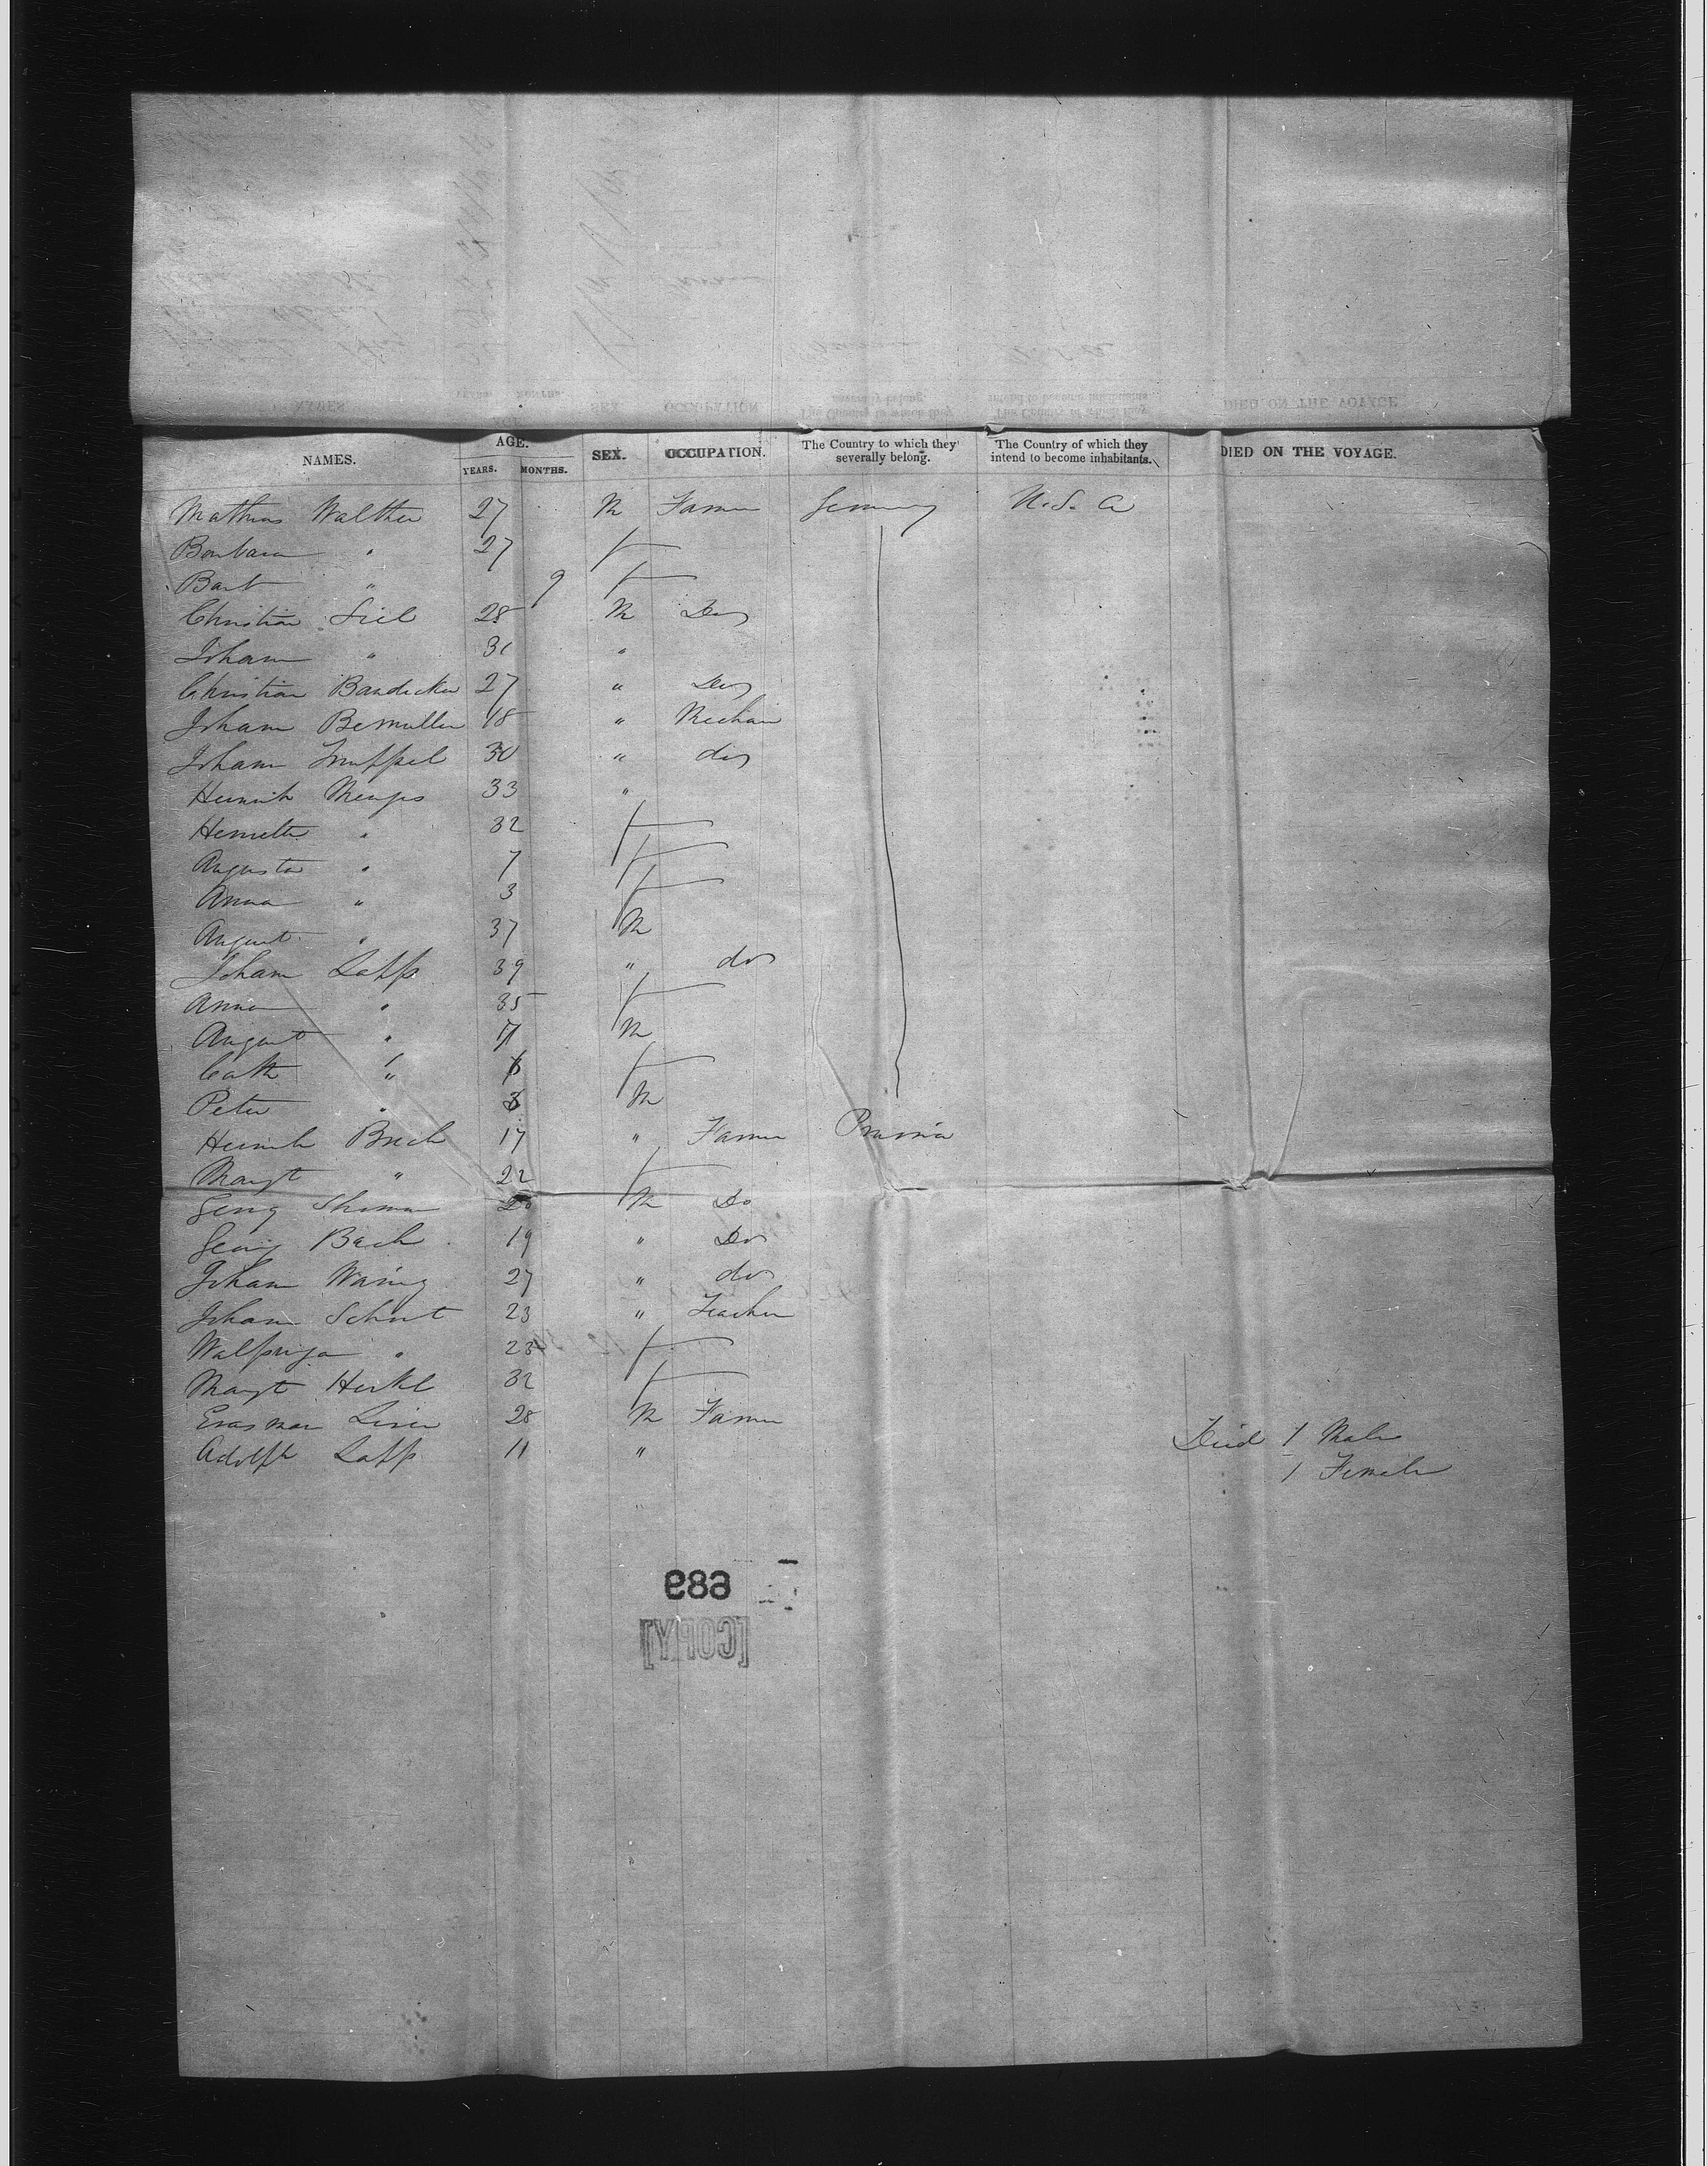 NAMES. AGE. YEARS. MONTHS. SEX. OCCUPATION. The Country to which they severally belong. The Country of which they intend to become inhabitants. DIED ON THE VOYAGE.
Mathias Walther 27 M Farmer Germany U.S.A
Barbara " 27 F
Barb " 9 F
Christian Siel 28 M Do
Joham " 31 "
Christian Bandicker 27 " Do
Joham Bemuller 18 " Mechanic
Joham Knuppel 30 " do
Heinrich Menges 33 "
Henriette " 32 F
Augusta " 7 F
Anna " 3 F
August " 37 M
Joham Lapp 39 " do
Anna " 35 F
August " M
Cath " F
Peter " M
Heinrich Bach 17 " Farmer Prussia
Margt " 22 F
Georg 20 M Do
Georg Bach 19 " Do
Joham Waring 27 " do
Joham Schut 23 " Teacher
Walpurga " 23 F
Margt Herkl 32 F
Erasmus 28 M Farmer
Adolph Lapp 11 "
Died 1 Male
1 Female
689
[COPY]